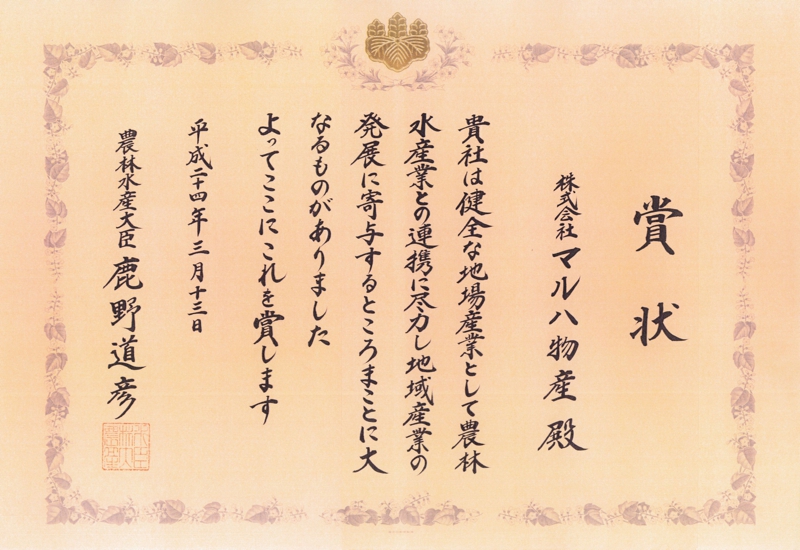 賞状
株式会社マルハ物産殿
貴社は健全な地場産業として農林
水産業との連携に尽力し地域産業の
発展に寄与するところまことに大
なるものがありました
よってここにこれを賞します
平成二十四年三月十三日
農林水産大臣鹿野道彦